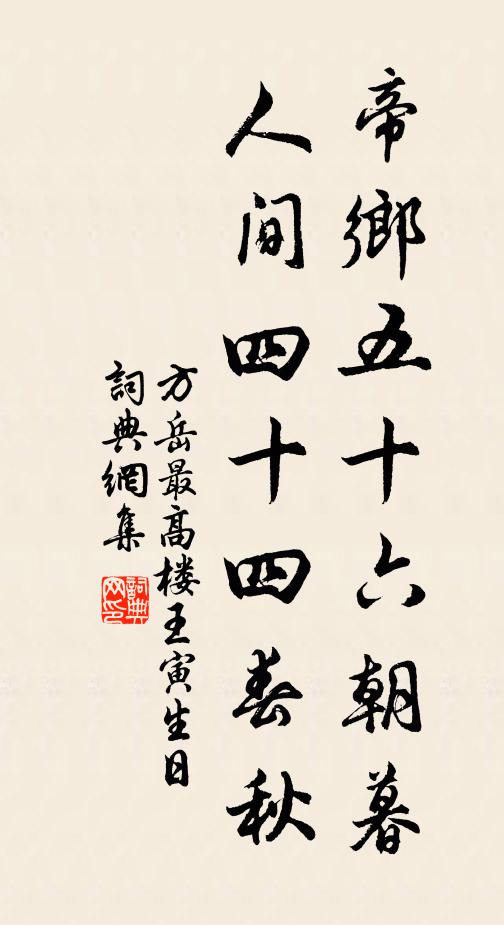 帝鄉五十六朝暮
人间四十四春秋
方岳最高楼王寅生日
詞典網集
詞典網印